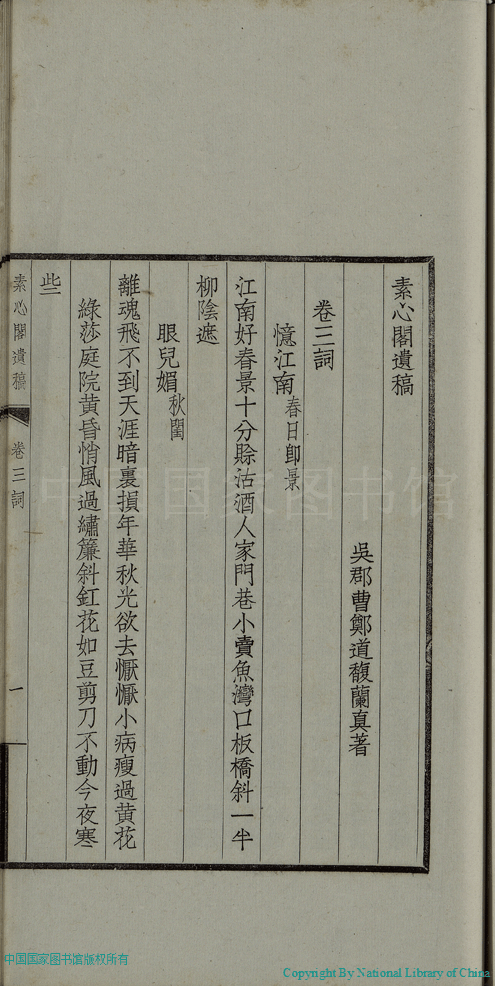 素心閣遺稿
吳郡曹鄭道馥蘭真著
卷三詞
憶江南春日卽景
江南好春景十分賒沽酒人家門巷小賣魚灣口板橋斜一半
柳陰遮
眼兒媚秋閨
離魂飛不到天涯暗裏損年華秋光欲去懨懨小病瘦過黃花
綠莎庭院黃昏悄風過繡簾斜釭花如豆剪刀不動今夜寒
些
素心閣遺稿
卷三詞
一
中国国家图书馆
中国国家图书馆版权所有
Copyright By National Library of China